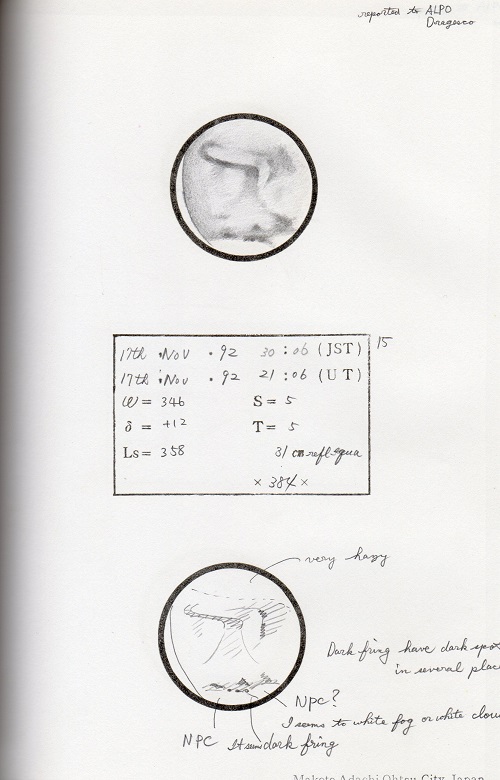 reported to ALPO
Dragesco
17th . Nov . 92 30 : 06 (JST) 15
17th . Nov . 92 21 : 06 (UT)
ω = 346 S = 5
δ = +12 T = 5
Ls = 358 31 cm refl. equa
× 384 ×
very hazy
Dark fring have dark spot
in several plac
NPC?
I seems to white fog or white clou
NPC It seems dark fring
Makoto Adachi Ohtsu City Japan